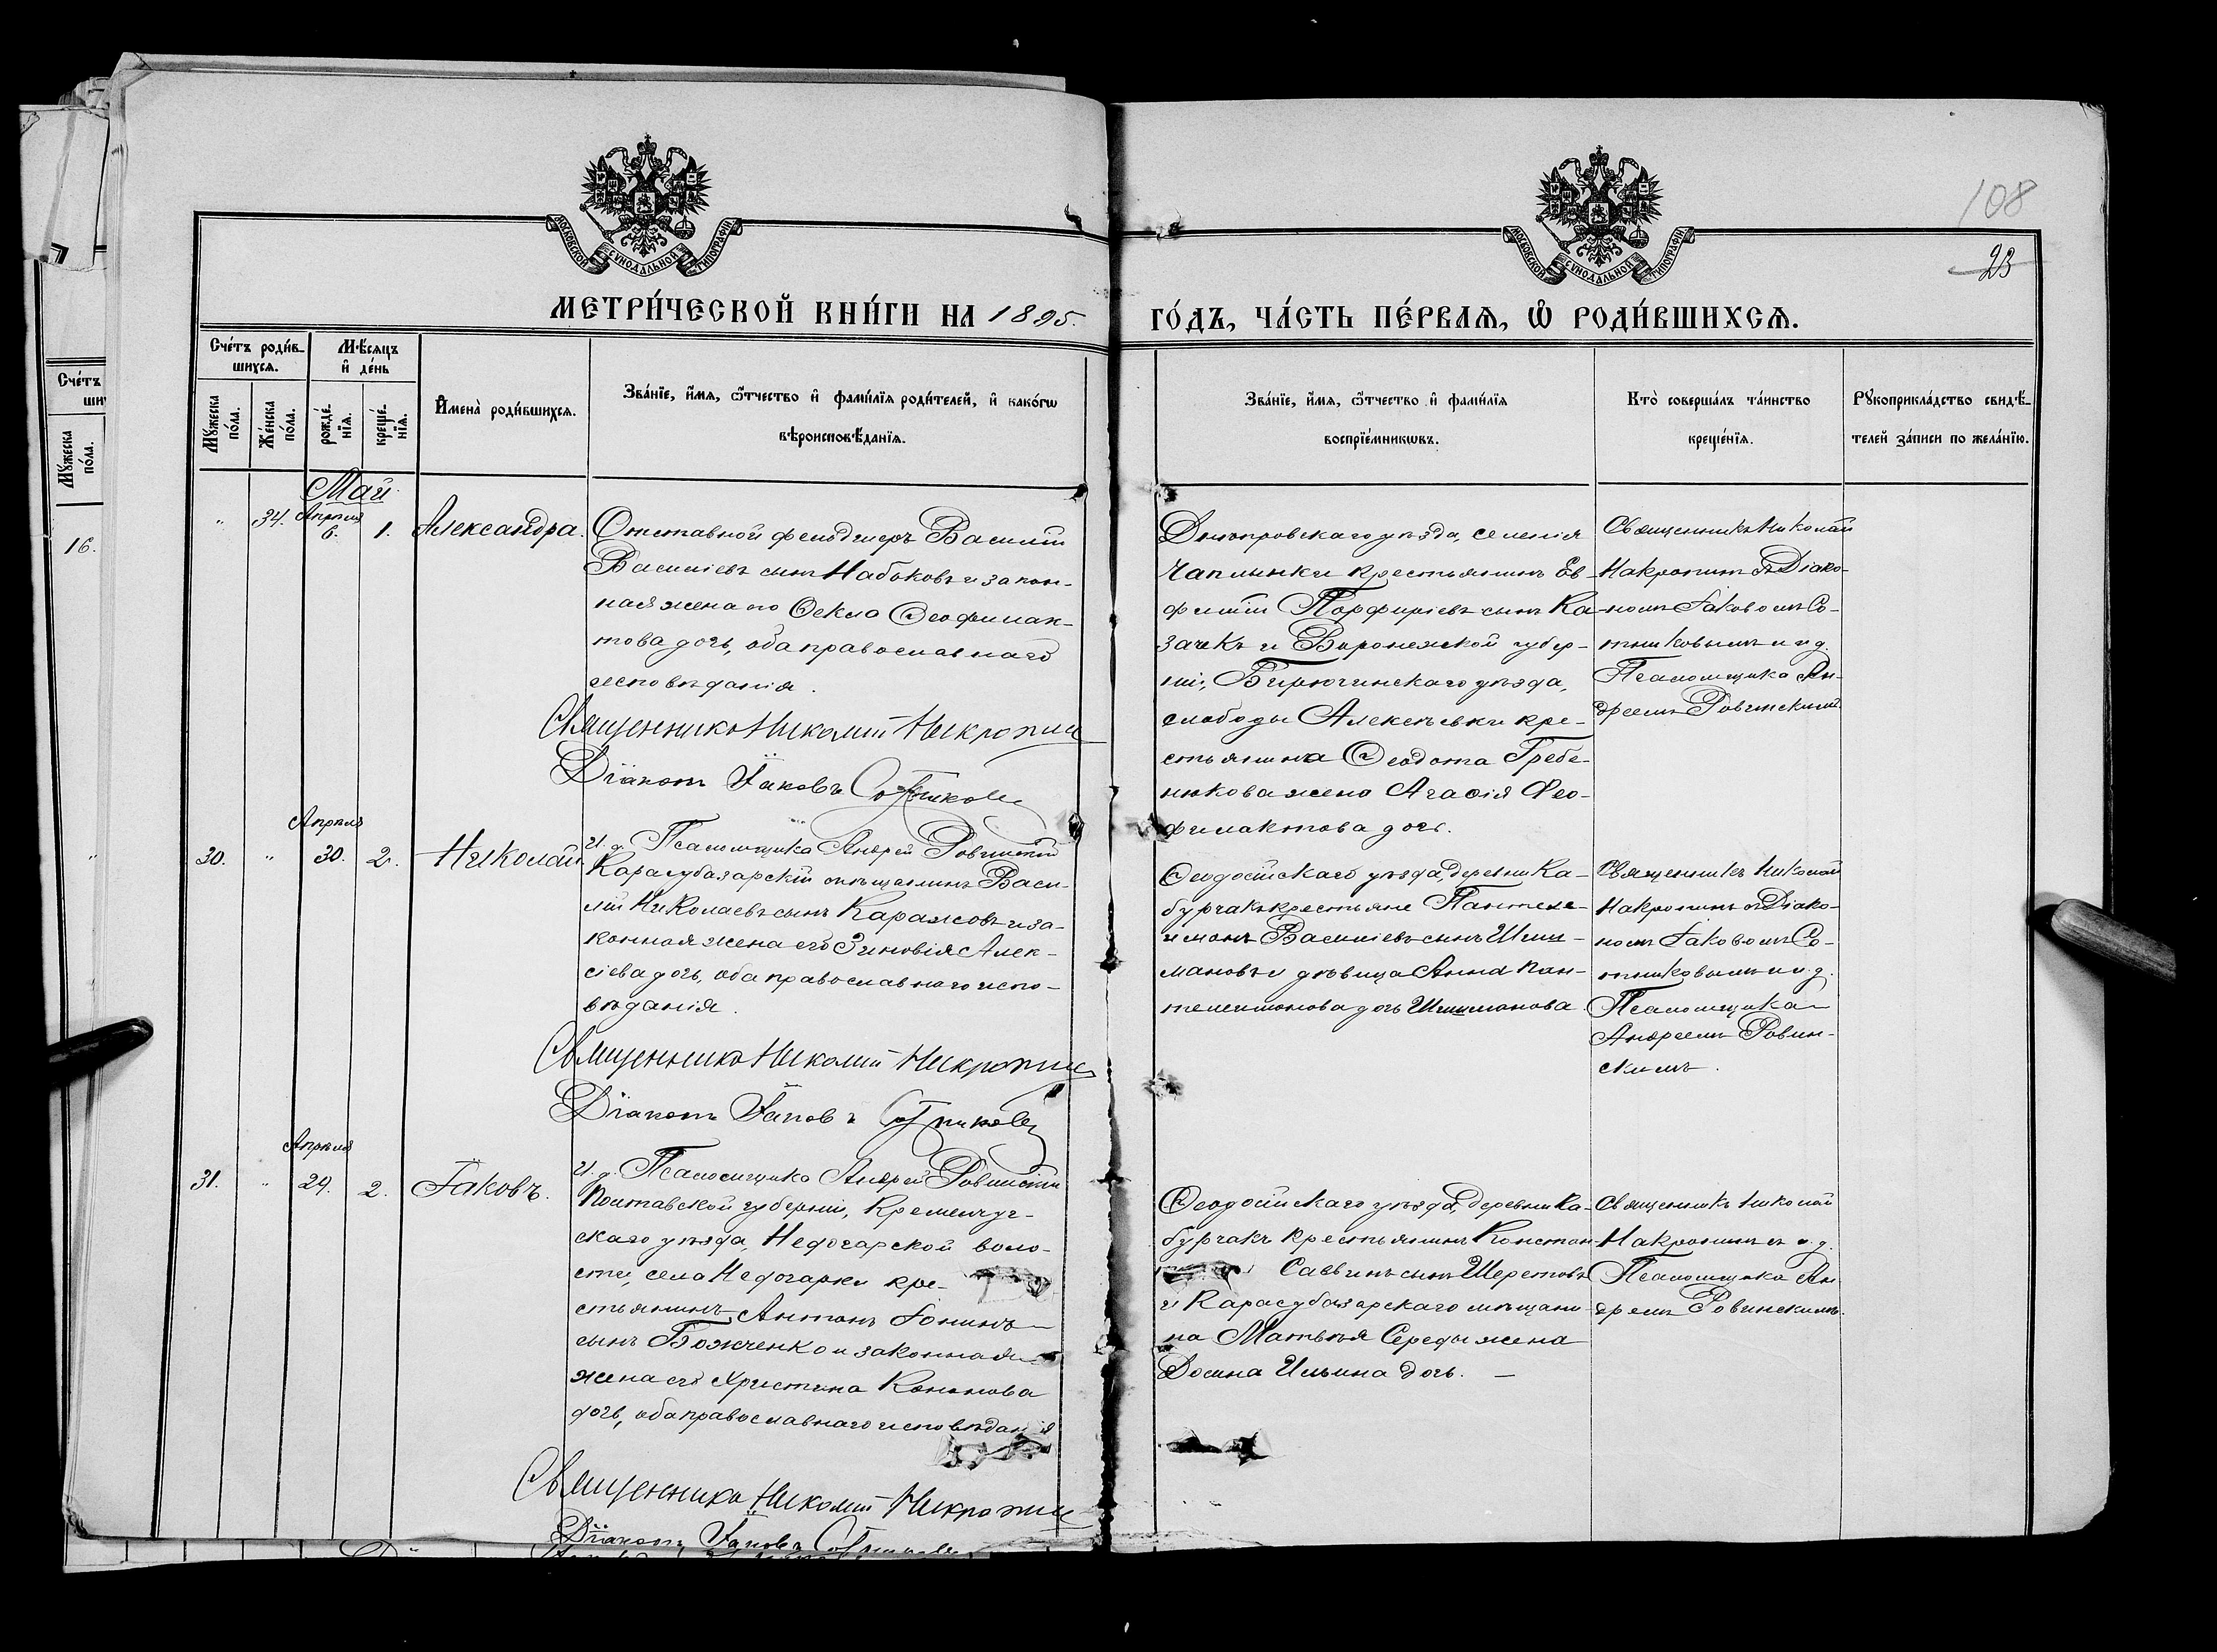 108
23
МОСКОВСКОЙ СѴНОДАЛЬНОЙ ТИПОГРАФІИ
МОСКОВСКОЙ СѴНОДАЛЬНОЙ ТИПОГРАФІИ
МЕТРИ́ЧЕСКОЙ КНИ́ГИ НА 1895.
ГО́ДЪ, ЧА́СТЬ ПЕ́РВАѦ, Ѡ҆ РОДИ́ВШИХСѦ.
Сче́тъ роди́в-
шихсѧ.
Мꙋ́жеска по́ла.
Же́нска по́ла.
Мѣ́сѧцъ и҆ де́нь
рожде́нїѧ.
креще́нїѧ.
И҆мена̀ роди́вшихсѧ.
Зва́нїе, и҆́мѧ, ѻ҆́тчество и҆ фами́лїѧ роди́телей, и҆ како́гѡ
вѣроисповѣ́данїѧ.
Зва́нїе, и҆́мѧ, ѻ҆́тчество и҆ фами́лїѧ
воспрїе́мникѡвъ.
Кто̀ соверша́лъ та́инство
креще́нїѧ.
Рꙋкоприкла́дство свидѣ́-
телей за́писи по жела́нїю.
Сче́тъ
Мꙋ́жеска по́ла.
16.
Май
„ 34. Апрѣля 6. 1. Александра.
Отставной фельдшеръ Василій
Васильевъ сынъ Набоковъ и закон-
ная жена его Ѳекла Ѳеофилак-
това дочь, оба православнаго
исповѣданія.
Священникъ Николай Накропинъ
Діаконъ Іаковъ Сотниковъ
И. д. Псаломщика Андрей Ровинскій
Днѣпровскаго уѣзда, селенія
Чаплынки крестьянинъ Ев-
фимій Порфиріевъ сынъ Ка-
зачекъ и Воронежской губер-
ніи, Бирючинскаго уѣзда,
слободы Алексѣевки кре-
стьянина Ѳеодота Гребе-
нюкова жена Агаѳія Ѳео-
филактова дочь.
Священникъ Николай
Накропинъ съ Діако-
номъ Іаковомъ Со-
тниковымъ и и. д.
Псаломщика Ан-
дреемъ Ровинскимъ.
30. „ Апрѣль 30. 2. Николай
Карасубазарскій мѣщанинъ Васи-
лій Николаевъ сынъ Каражовъ и за-
конная жена его Зиновія Алек-
сіева дочь, оба православнаго испо-
вѣданія.
Священникъ Николай Накропинъ
Діаконъ Іаковъ Сотниковъ
И. д. Псаломщика Андрей Ровинскій
Ѳеодосійскаго уѣзда, деревни Ка-
бурчакъ крестьяне Пантеле-
имонъ Васильевъ сынъ Шиш-
мановъ и дѣвица Анна Пан-
телеимонова дочь Шишманова.
Священникъ Николай
Накропинъ съ Діако-
номъ Іаковомъ Со-
тниковымъ и и. д.
Псаломщика
Андреемъ Ровин-
скимъ.
31. „ Апрѣля 29. 2. Іаковъ.
Полтавской губерніи, Кременчуг-
скаго уѣзда, Недогарской воло-
сти, села Недогарки кре-
стьянинъ Антонъ Іонинъ
сынъ Божченко и законная
жена его Христина Кононова
дочь, оба православнаго исповѣданія
Священникъ Николай Накропинъ
Діаконъ Іаковъ Сотниковъ
Ѳеодосійскаго уѣзда, деревни Ка-
бурчакъ крестьянинъ Констан-
Саввинъ сынъ Шереметовъ
и Карасубазарскаго мѣщани-
на Матвѣя Середы жена
Домна Ильина дочь. —
Священникъ Николай
Накропинъ съ и. д.
Псаломщика Ан-
дреемъ Ровинскимъ.